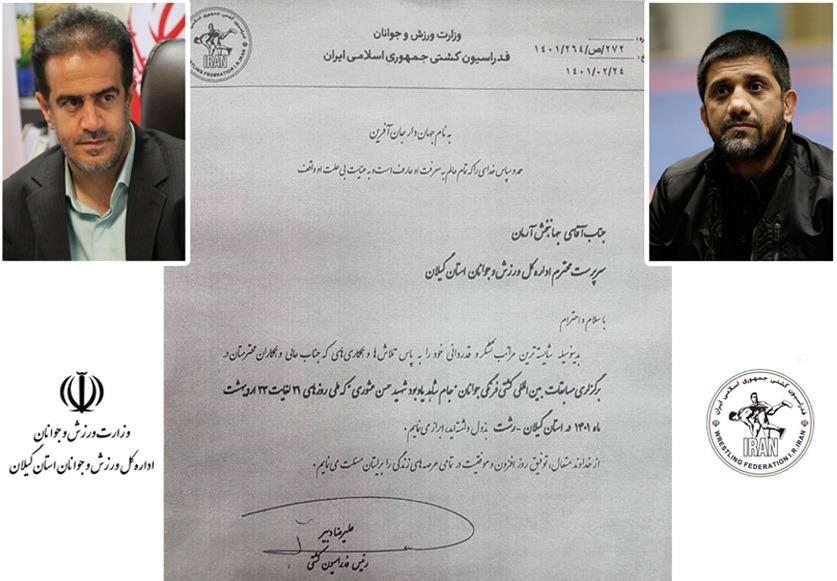 وزارت ورزش و جوانان
فدراسیون کشتی جمهوری اسلامی ایران
۱۴۰۱/۲۶۴/ص/۲۷۲
۱۴۰۱/۰۲/۲۴
IRAN
WRESTLING FEDERATION I.R.IRAN
به نام جهان دار جان آفرین
حمد و سپاس خدای را که تمام عالم به معرفت او عارف است و به عنایت بی علت او واقف
جناب آقای جهانبخش آرمان
سرپرست محترم اداره کل ورزش و جوانان استان گیلان
با سلام و احترام
بدینوسیله شایسته ترین مراتب تشکر و قدردانی خود را به پاس تلاش ها و همکاری های که جناب عالی و همکاران محترمتان در
برگزاری مسابقات بین المللی کشتی فرنگی جوانان "جام شاهد یادبود شهید حسن عشوری" که طی روزهای ۲۱ لغایت ۲۳ اردیبهشت
ماه ۱۴۰۱ در استان گیلان - رشت بذول داشته اید، ابراز می نمایم.
از خداوند متعال، توفیق روز افزون و موفقیت در تمامی عرصه های زندگی را برایتان مسئلت می نمایم.
علیرضا دبیر
رئیس فدراسیون کشتی
وزارت ورزش و جوانان
اداره کل ورزش و جوانان استان گیلان
فدراسیون کشتی جمهوری اسلامی ایران
IRAN
WRESTLING FEDERATION I.R.IRAN